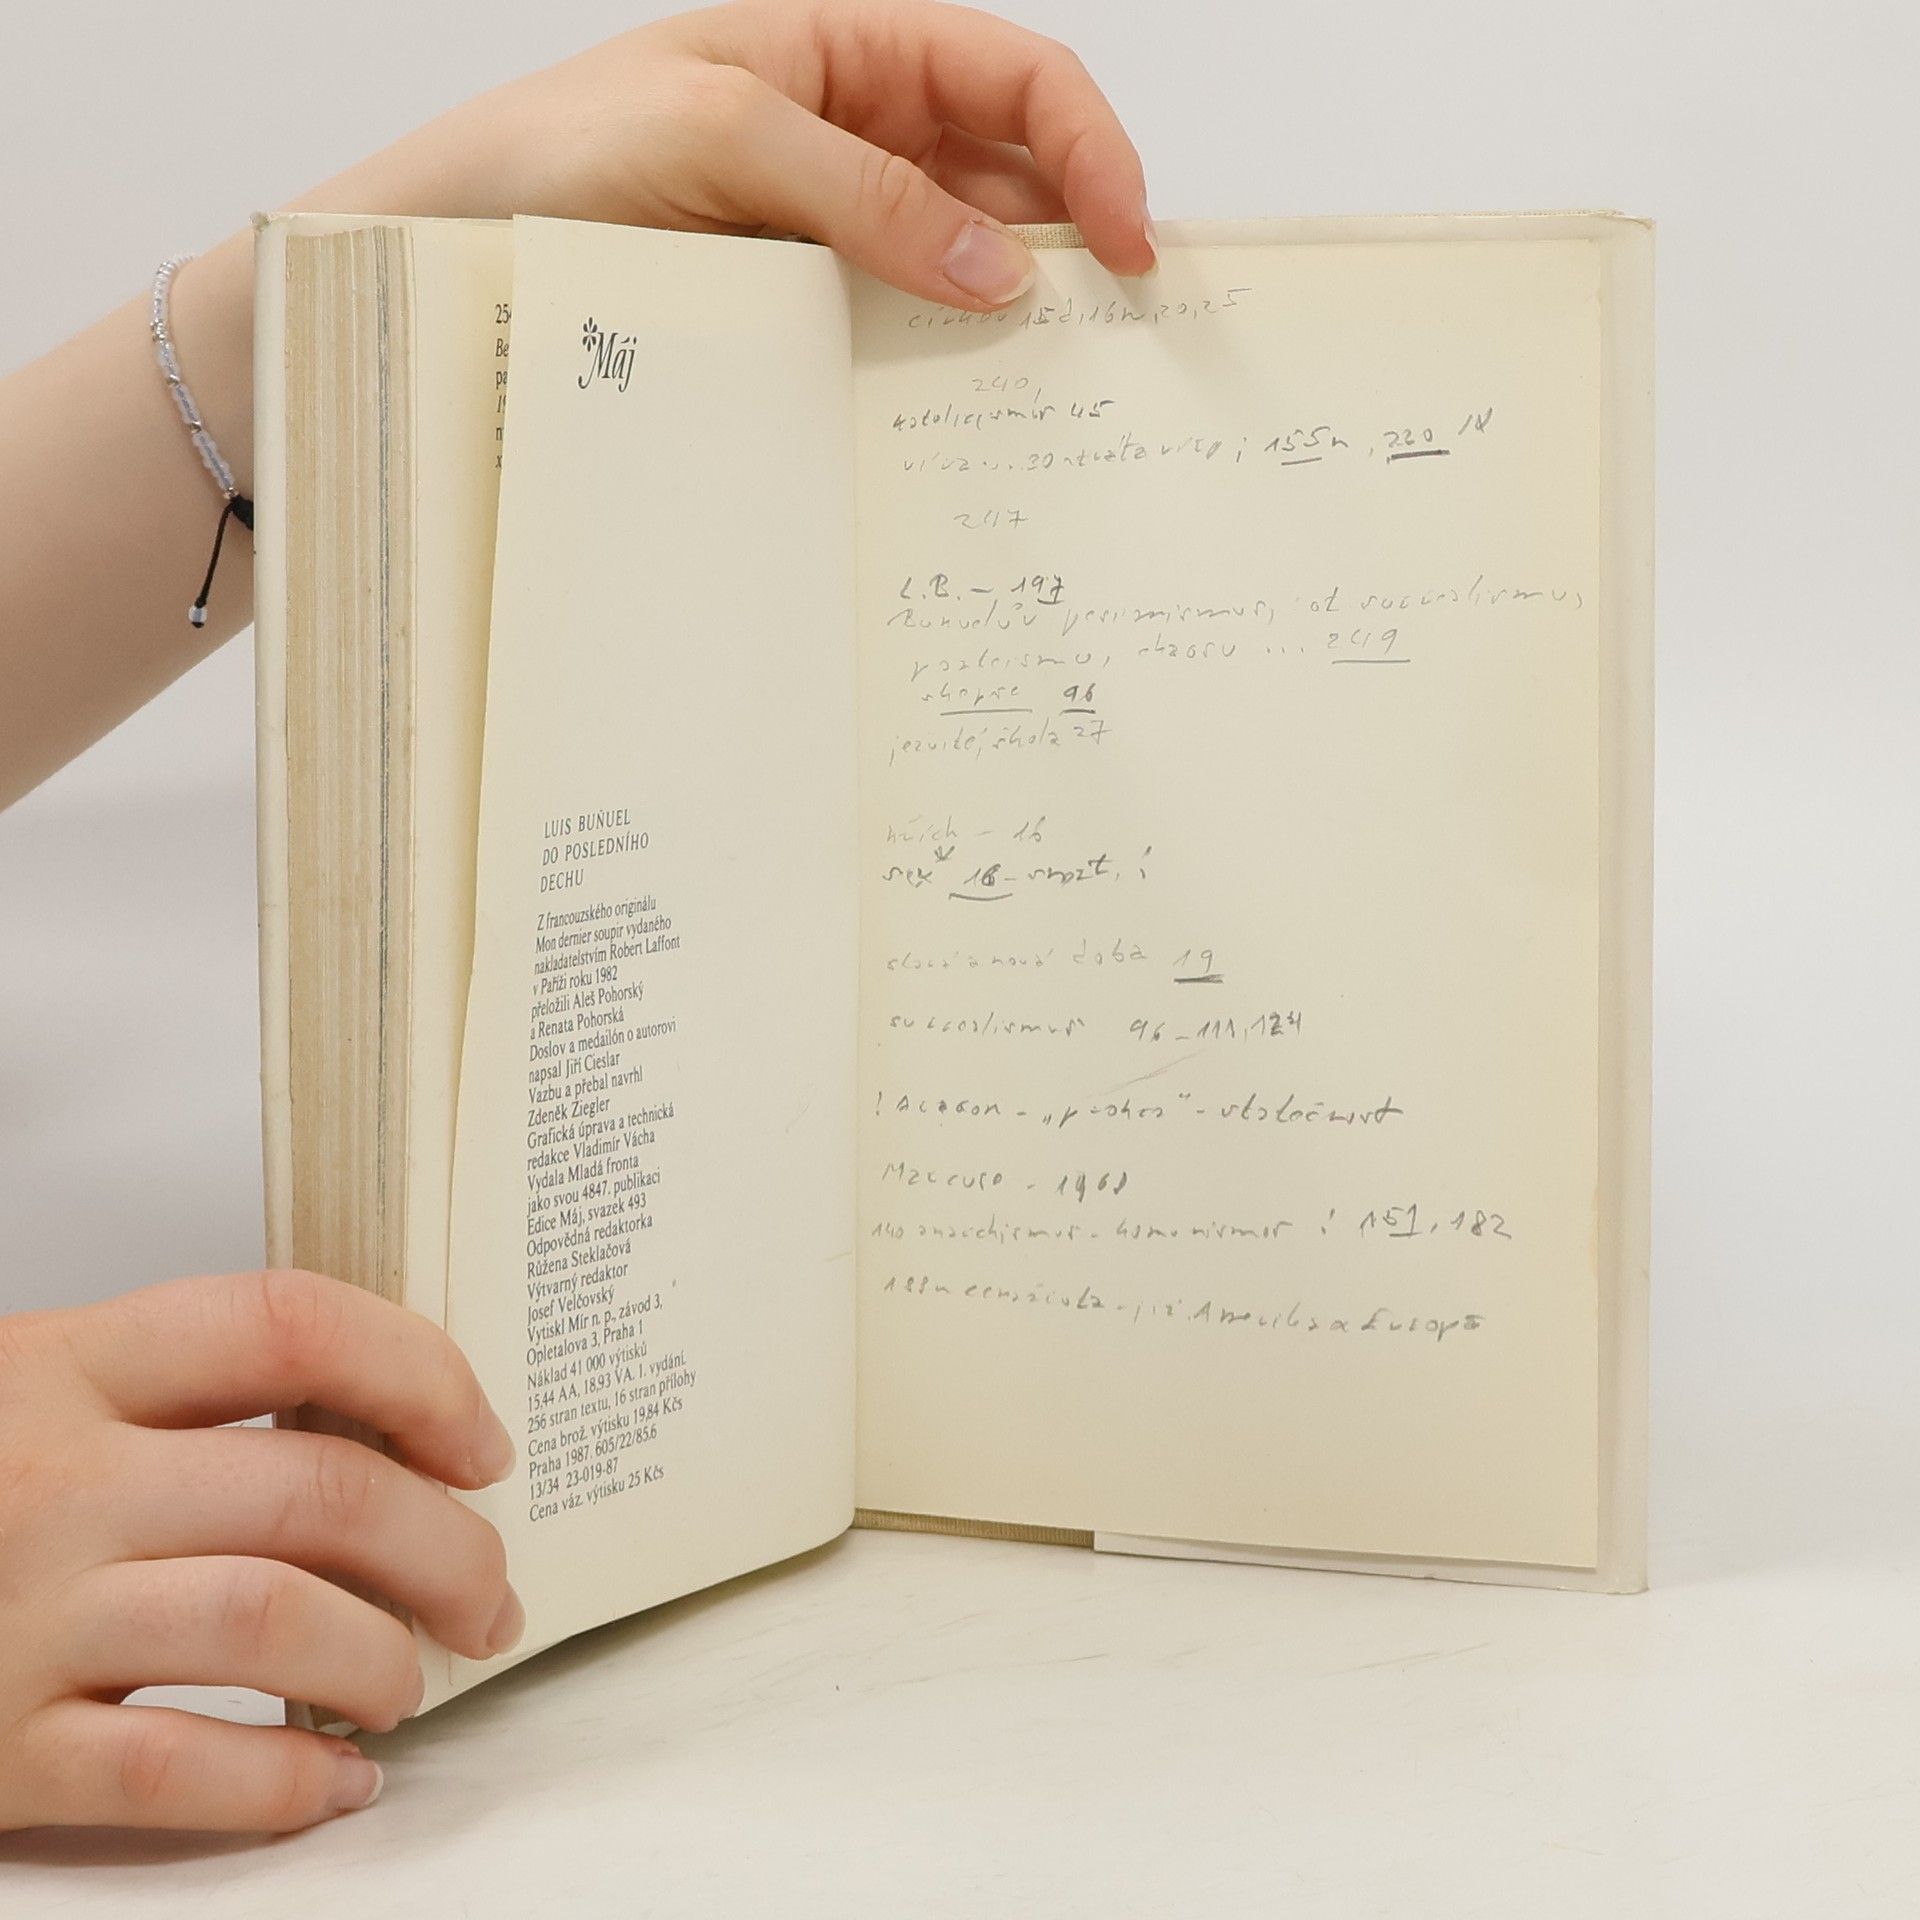 254
Be
pa
19
n
x
Máj
LUIS BUÑUEL
DO POSLEDNÍHO
DECHU
Z francouzského originálu
Mon dernier soupir vydaného
nakladatelstvím Robert Laffont
v Paříži roku 1982
přeložili Aleš Pohorský
a Renata Pohorská
Doslov a medailón o autorovi
napsal Jiří Cieslar
Vazbu a přebal navrhl
Zdeněk Ziegler
Grafická úprava a technická
redakce Vladimír Vácha
Vydala Mladá fronta
jako svou 4847. publikaci
Edice Máj, svazek 493
Odpovědná redaktorka
Růžena Steklačová
Výtvarný redaktor
Josef Velčovský
Vytiskl Mír n. p., závod 3,
Opletalova 3, Praha 1
Náklad 41 000 výtisků
15,44 AA, 18,93 VA. 1. vydání.
256 stran textu, 16 stran přílohy
Cena brož. výtisku 19,84 Kčs
Praha 1987. 605/22/85.6
13/34 23-019-87
Cena váz. výtisku 25 Kčs
20, 25
240,
katolicismus 45
víra ... 30 ztráta víry ; 155n, 220
247
L.B. – 197
Buñuelův pesimismus, od surrealismu,
chaosu ... 249
skepse 96
jezuité, škola 27
hřích – 16
sex 16 – smrt. !
stará a nová doba 19
surrealismus 96 – 111, 124
! Aragon - - statečnost
Marcuse - 1968
140 anarchismus - komunismus ! 151, 182
Amerika a Evropa